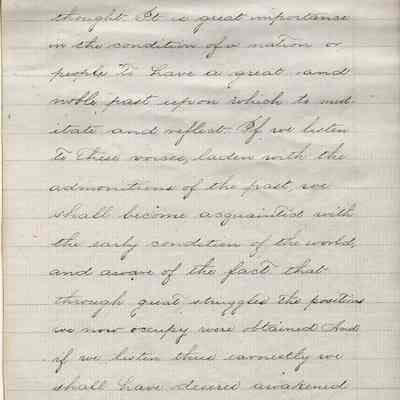 thought. It is great importance
in the condition of a nation or
people to have a great and
noble past upon which to med-
itate and reflect. If we listen
to these voices, laden with the
admonitions of the past, we
shall become acquainted with
the early condition of the world,
and aware of the fact that
through great struggles the position
we now occupy were obtained. And
if we listen thus earnestly we
shall have desires awakened